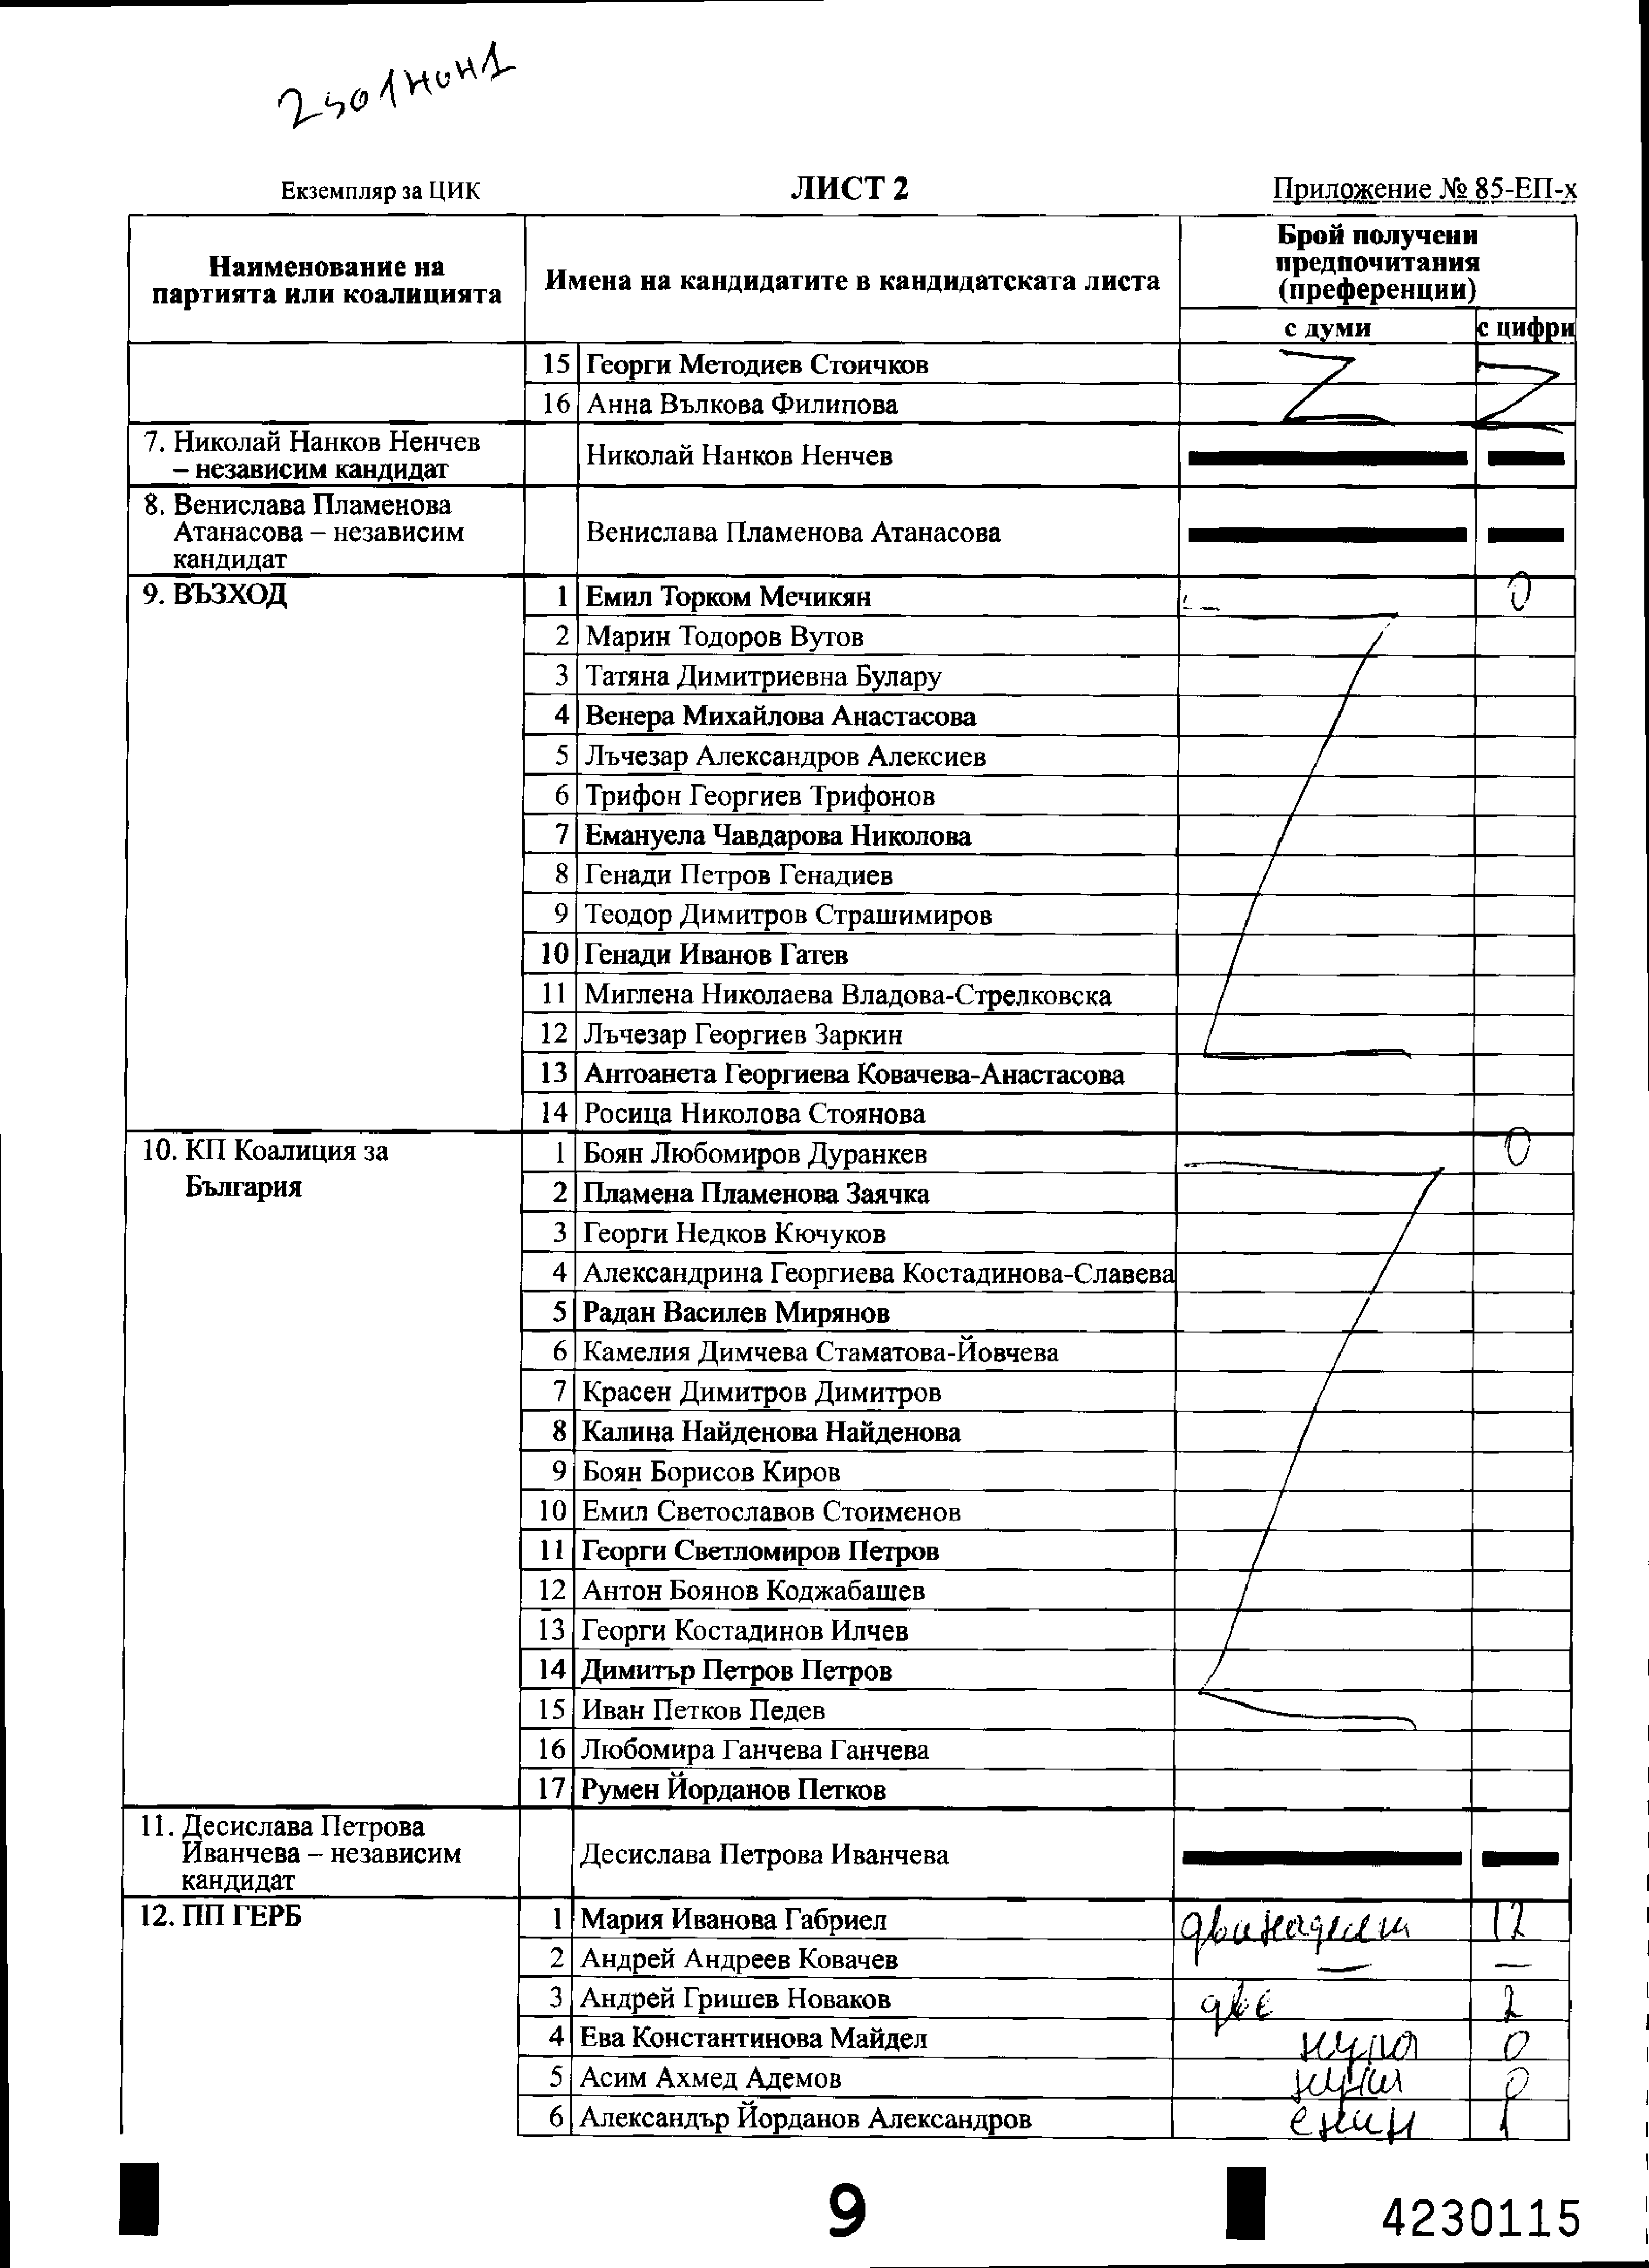 Екземпляр за ЦИК
ЛИСТ 2
Приложение № 85-ЕП-х
Наименование на партията или коалицията
Имена на кандидатите в кандидатската листа
Брой получени предпочитания (преференции)
с думи
с цифри
15 Георги Методиев Стоичков
16 Анна Вълкова Филипова
7. Николай Нанков Ненчев
– независим кандидат
Николай Нанков Ненчев
8. Венислава Пламенова
Атанасова – независим
кандидат
Венислава Пламенова Атанасова
9. ВЪЗХОД
1 Емил Торком Мечикян 0
2 Марин Тодоров Вутов
3 Татяна Димитриевна Булару
4 Венера Михайлова Анастасова
5 Лъчезар Александров Алексиев
6 Трифон Георгиев Трифонов
7 Емануела Чавдарова Николова
8 Генади Петров Генадиев
9 Теодор Димитров Страшимиров
10 Генади Иванов Гатев
11 Миглена Николаева Владова-Стрелковска
12 Лъчезар Георгиев Заркин
13 Антоанета Георгиева Ковачева-Анастасова
14 Росица Николова Стоянова
10. КП Коалиция за
България
1 Боян Любомиров Дуранкев 0
2 Пламена Пламенова Заячка
3 Георги Недков Кючуков
4 Александрина Георгиева Костадинова-Славева
5 Радан Василев Мирянов
6 Камелия Димчева Стаматова-Йовчева
7 Красен Димитров Димитров
8 Калина Найденова Найденова
9 Боян Борисов Киров
10 Емил Светославов Стоименов
11 Георги Светломиров Петров
12 Антон Боянов Коджабашев
13 Георги Костадинов Илчев
14 Димитър Петров Петров
15 Иван Петков Педев
16 Любомира Ганчева Ганчева
17 Румен Йорданов Петков
11. Десислава Петрова
Иванчева – независим
кандидат
Десислава Петрова Иванчева
12. ПП ГЕРБ
1 Мария Иванова Габриел 12
2 Андрей Андреев Ковачев — —
3 Андрей Гришев Новаков две 2
4 Ева Константинова Майдел нула 0
5 Асим Ахмед Адемов нула 0
6 Александър Йорданов Александров 1
9
4230115